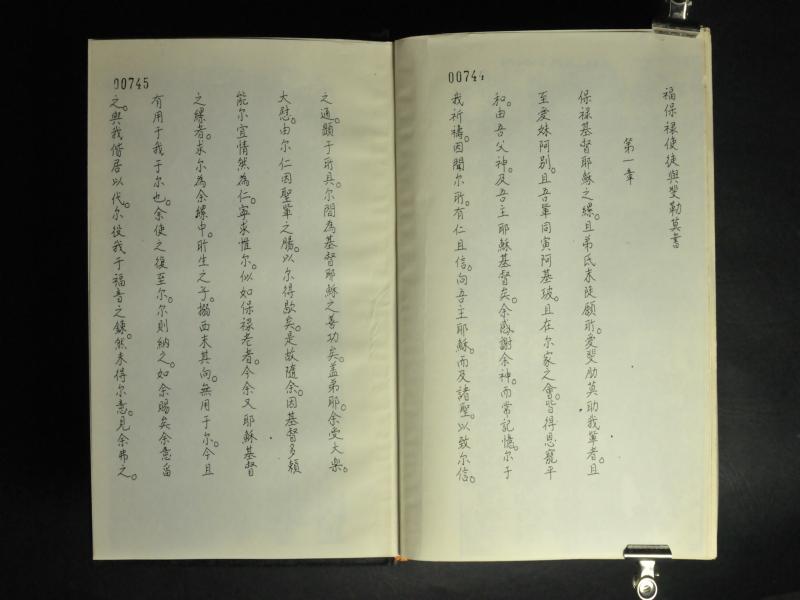 00744
福保祿使徒與斐勒莫書
第一章
保祿基督耶穌之縲。且弟氏末陡願所愛斐肋莫助我輩者。且
至愛妹阿別。且吾軍同寅阿基玻。且在尔家之會。皆得恩寵平
和。由吾父神。及吾主耶穌基督矣。余感謝余神。而常記憶。尔于
我祈禱。因聞尔所有仁且信。向吾主耶穌。而及諸聖。以致尔信。
00745
之通。顯于所具。尔間為基督耶穌之善功矣。盖弟耶。余受大樂。
大慰。由尔仁因聖輩之腸。以尔得歇矣。是故隨余。因基督多頼
能尔宜情然為仁。寧求惟尔。似如保祿老者。今余又耶穌基督
之縲者。求尔為余縲中。所生之子。搦西末其向。無用于尔。今且
有用于我于尔也。余使之復至尔。尔則納之。如余腸矣余意畱
之。與我偕居以代。尔役我于福音之鍊。然未得尔意。見余弗之。